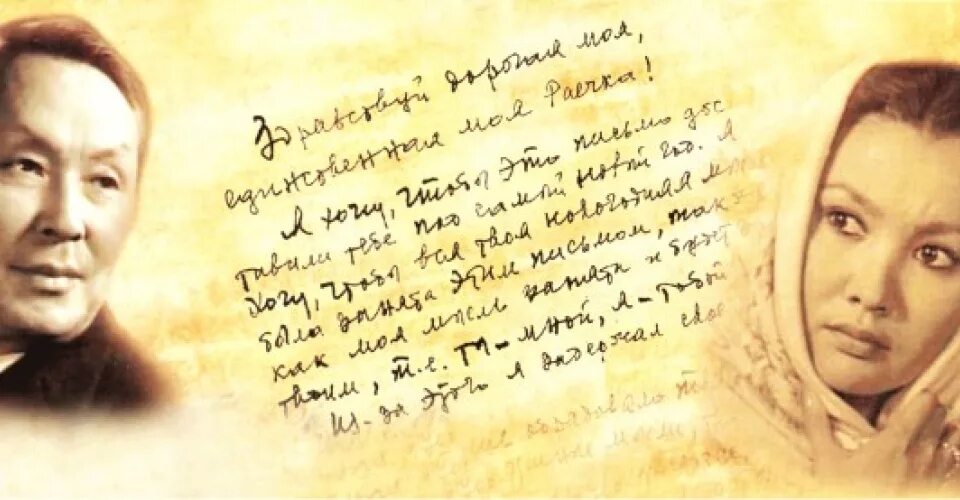 Здравствуй дорогая моя,
единственная моя Раечка!
Я хочу, чтобы это письмо дос
тавили тебе под самый новый год. Я
хочу, чтобы вся твоя новогодняя
была занята этим письмом, так
как моя мысль занята и будет
твоим, т.е. ты – мной, я – тобой
Из-за этого я задержал свое